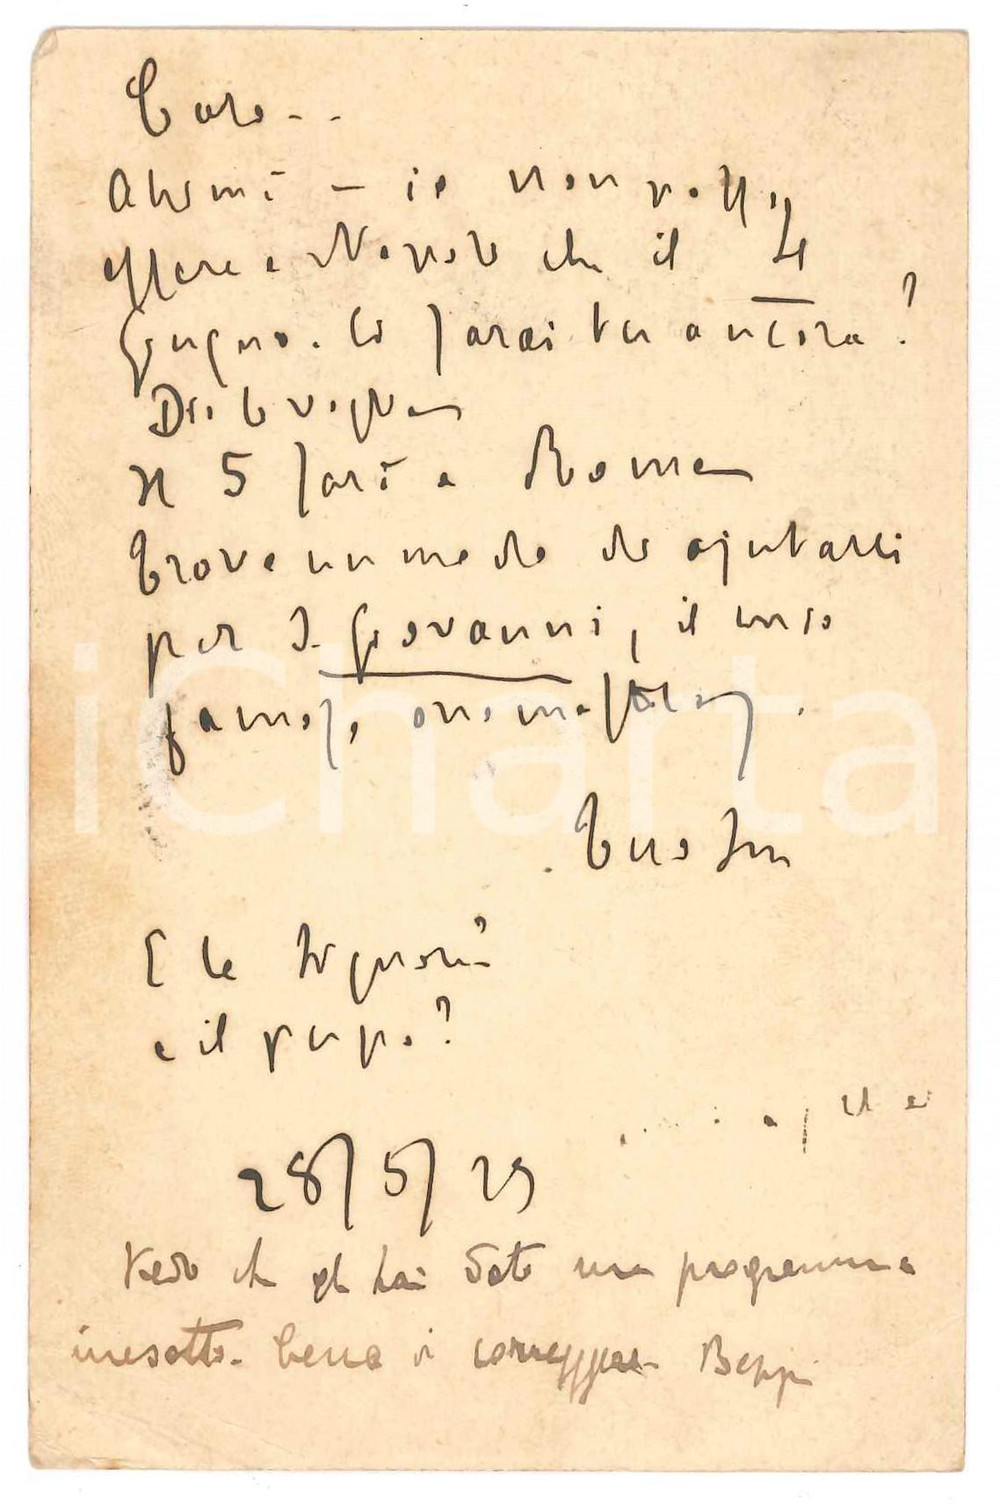 Caro - -
Ahimè - io non posso
essere a Napoli che il 4
Giugno. Ci sarai tu ancora?
Il 5 sarò a Roma
Trova un modo di ajutarci
per S. Giovanni, il mio
famoso onomastico.
Tuo
E la Signora?
e il pupo?
28/5/29
Vedo che gli hai dato un programma
inesatto. Cerca di correggere Beppi
iCharta